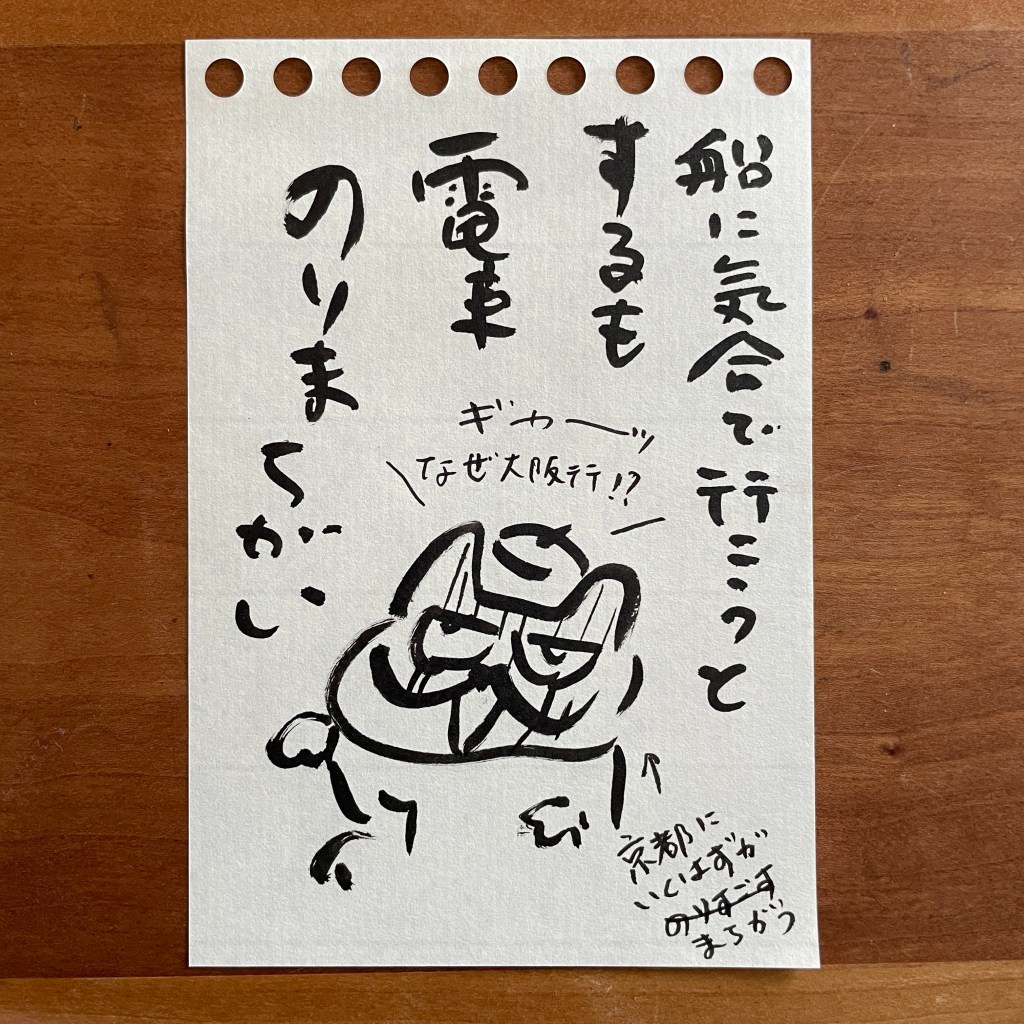 船に気合で行こっと
するも
電車
のりま
ちがい
ギャーッ
なぜ大阪行!?
京都に
いくはずが
のりすごす
まちがう